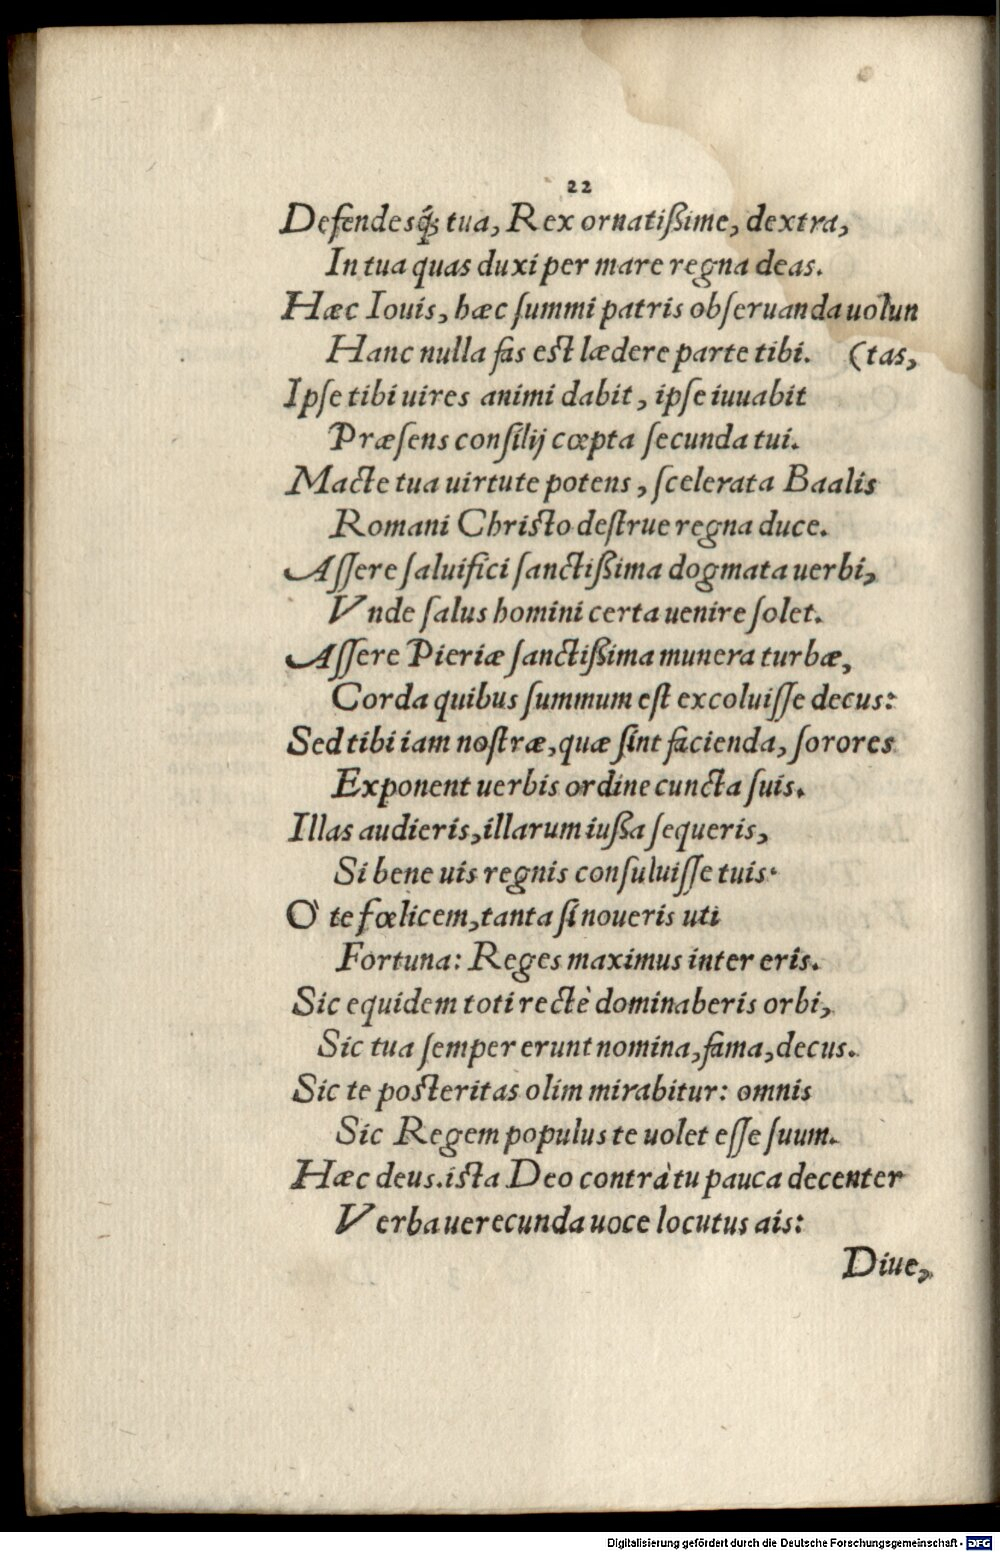 22
Defendesq́ꝫ tua, Rex ornatißime, dextra,
In tua quas duxi per mare regna deas.
Hæc Iouis, hæc ſummi patris obſeruanda uolun
Hanc nulla fas eſt lædere parte tibi. (tas,
Ipſe tibi uires animi dabit, ipſe iuuabit
Præſens conſilij cœpta ſecunda tui.
Macte tua uirtute potens, ſcelerata Baalis
Romani Chriſto deſtrue regna duce.
Aſſere ſaluifici ſanctißima dogmata uerbi,
Vnde ſalus homini certa uenire ſolet.
Aſſere Pieriæ ſanctißima munera turbæ,
Corda quibus ſummum eſt excoluiſſe decus:
Sed tibi iam noſtræ, quæ ſint facienda, ſorores
Exponent uerbis ordine cuncta ſuis.
Illas audieris, illarum iußa ſequeris,
Si bene uis regnis conſuluiſſe tuis.
Ò te fœlicem, tanta ſi noueris uti
Fortuna: Reges maximus inter eris.
Sic equidem toti rectè dominaberis orbi,
Sic tua ſemper erunt nomina, fama, decus.
Sic te poſteritas olim mirabitur: omnis
Sic Regem populus te uolet eſſe ſuum.
Hæc deus. iſta Deo contrà tu pauca decenter
Verba uerecunda uoce locutus ais:
Diue,
Digitalisierung gefördert durch die Deutsche Forschungsgemeinschaft - DFG